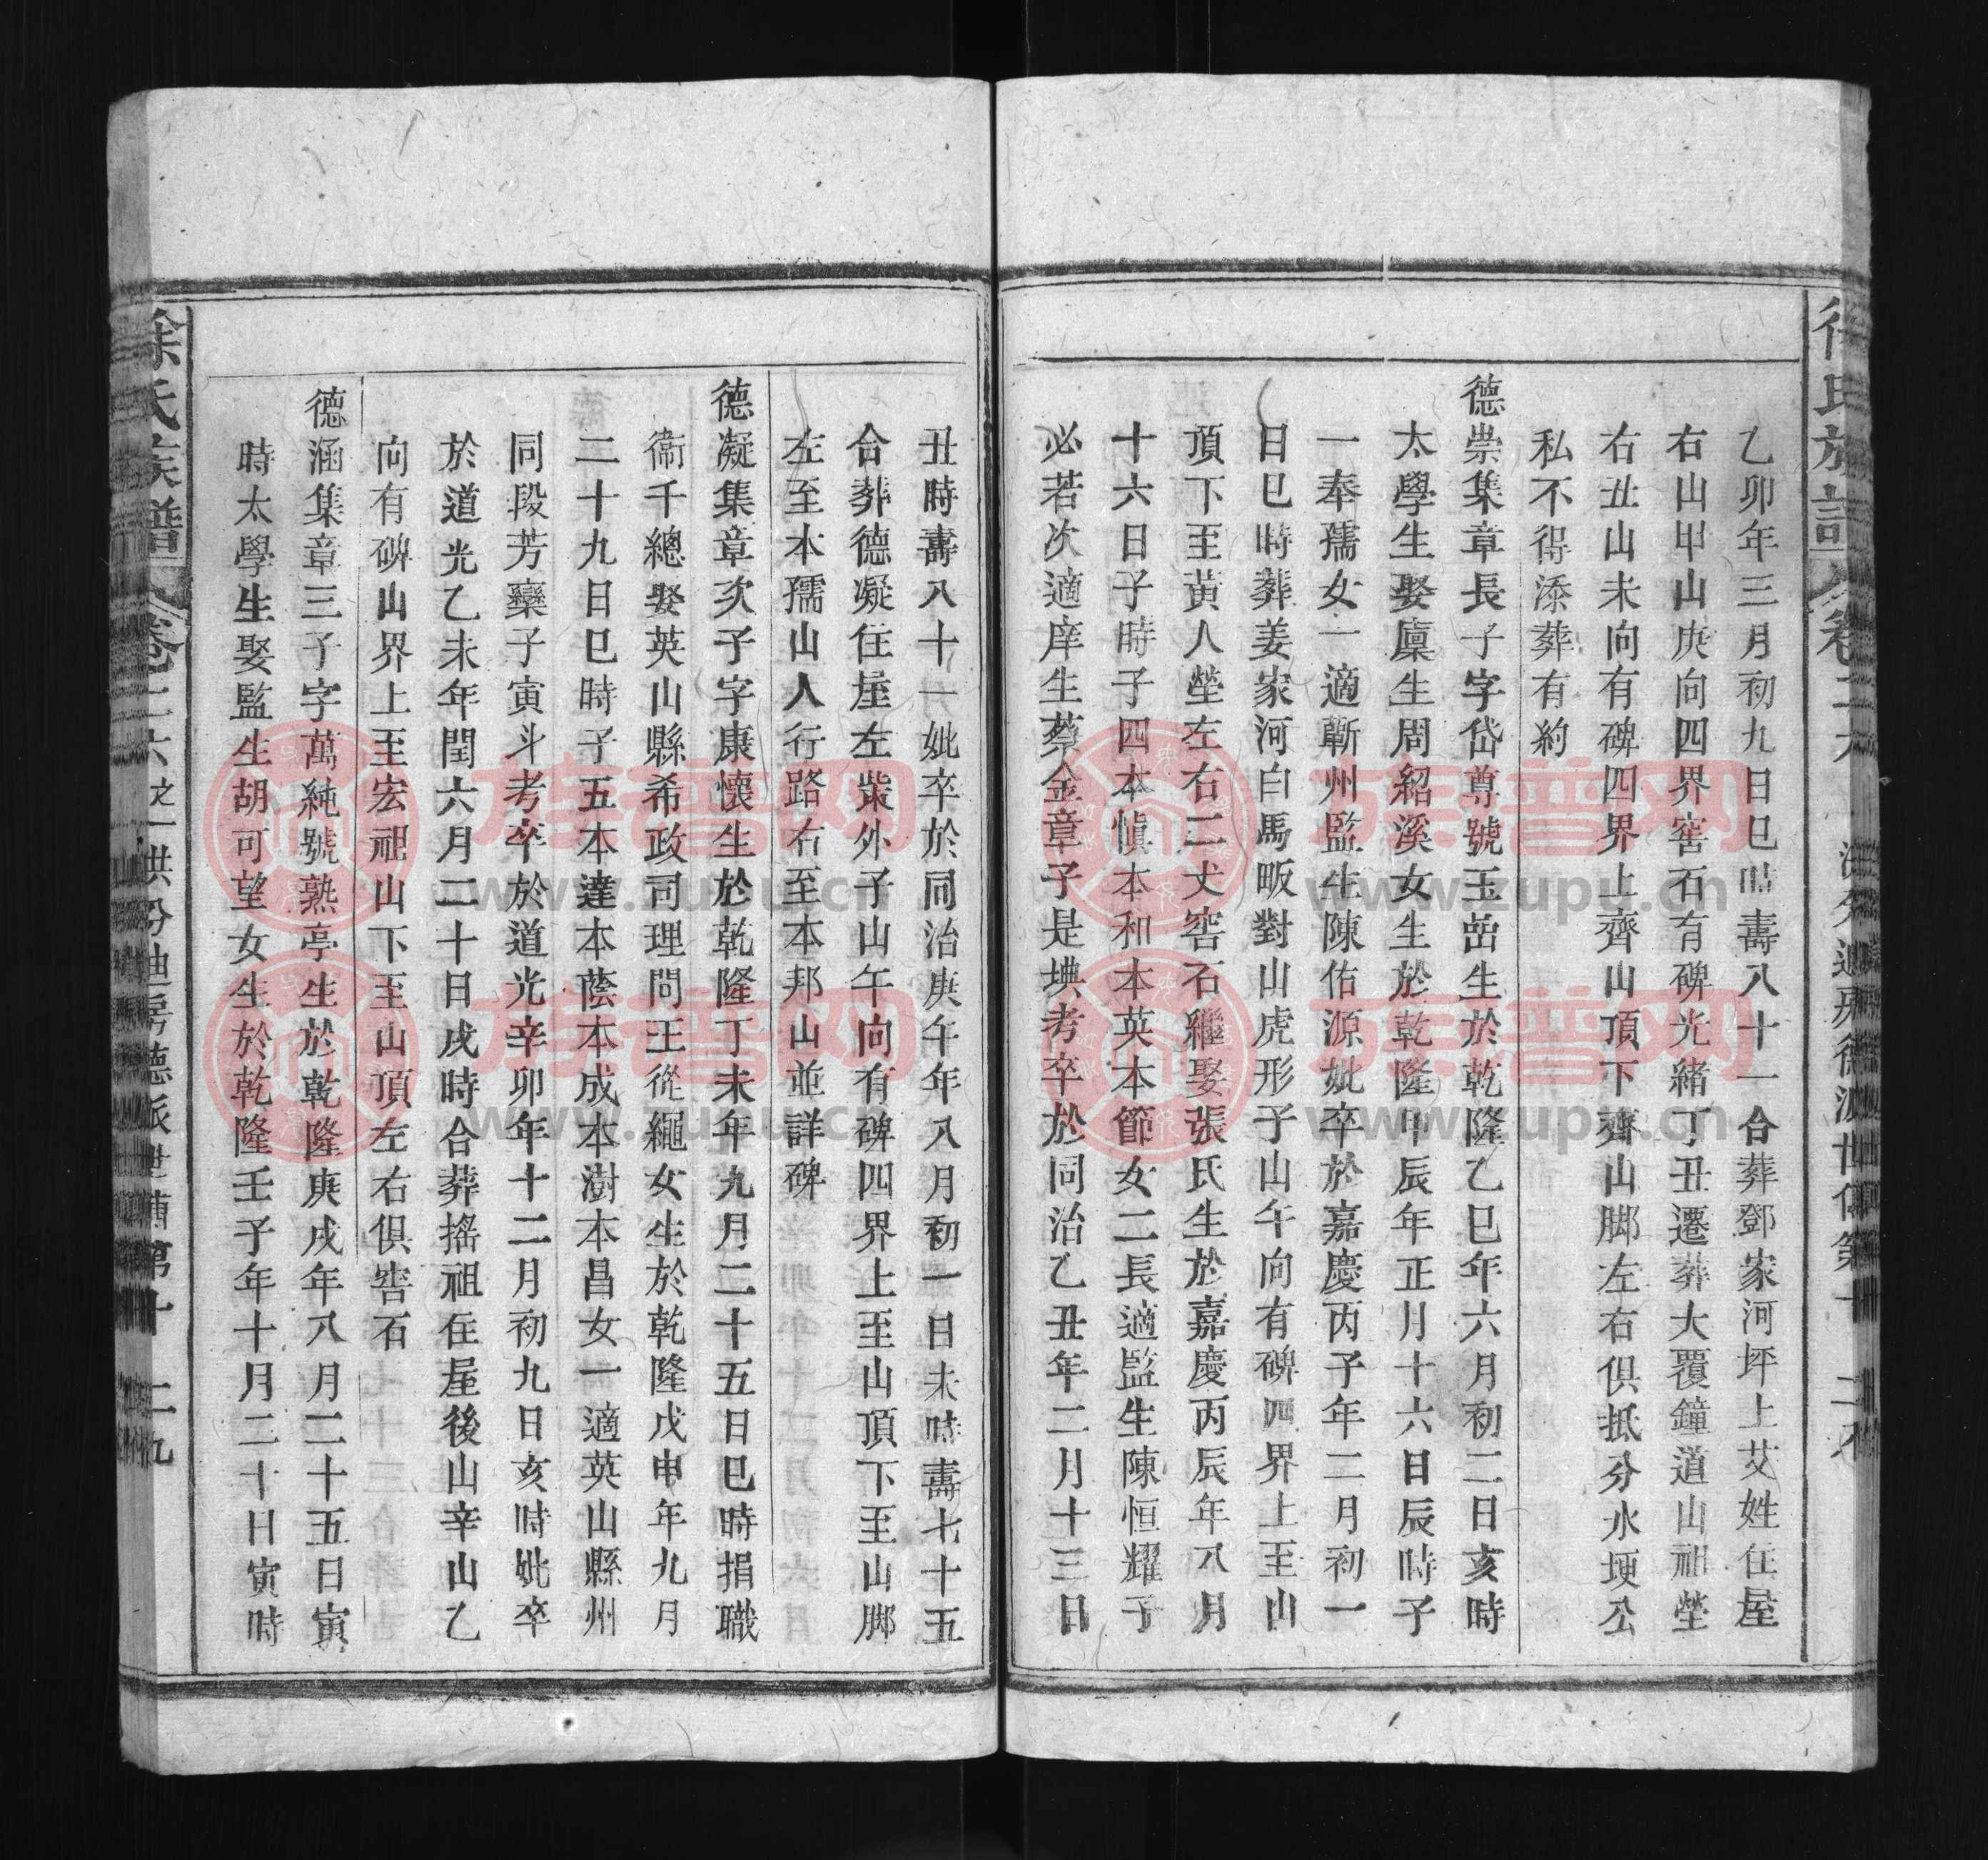 乙卯年三月初九日巳時壽八十一合葬鄧家河坪上艾姓住屋
右山甲山庚向四界窖石有碑光緒丁丑遷葬大覆鐘道山祖塋
右丑山未向有碑四界上齊山頂下齊山脚左右俱抵分水埂公
私不得添葬有約
德崇集章長子字岱尊號玉嵒生於乾隆乙巳年六月初二日亥時
太學生娶廩生周紹溪女生於乾隆甲辰年正月十六日辰時子
一奉孺女一適蘄州監生陳佑源妣卒於嘉慶丙子年二月初一
日巳時葬姜家河白馬畈對山虎形子山午向有碑四界上至山
頂下至黃人塋左右二丈窖石繼娶張氏生於嘉慶丙辰年八月
十六日子時子四本愼本和本英本節女二長適監生陳恒耀子
必若次適庠生蔡金章子是墺考卒於同治乙丑年二月十三日
丑時壽八十一妣卒於同治庚午年八月初一日未時壽七十五
合葬德凝住屋左塝外子山午向有碑四界上至山頂下至山脚
左至本孺山人行路右至本邦山並詳碑
德凝集章次子字康懷生於乾隆丁未年九月二十五日巳時捐職
衞千總娶英山縣希政司理問王從繩女生於乾隆戊申年九月
二十九日巳時子五本達本蔭本成本澍本昌女一適英山縣州
同段芳藥子寅斗考卒於道光辛卯年十二月初九日亥時妣卒
於道光乙未年閏六月二十日戌時合葬搖祖住屋後山辛山乙
向有碑山界上至宏祖山下至山頂左右俱窖石
德涵集章三子字萬純號熟亭生於乾隆庚戌年八月二十五日寅
時太學生娶監生胡可望女生於乾隆壬子年十月二十日寅時
徐氏族譜 卷二六之一洪分迪房德派世傳第十 二九